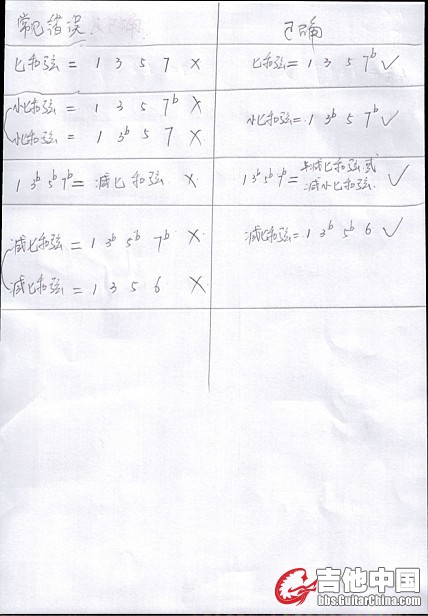 常见错误
正确
七和弦 = 1 3 5 7 ×
七和弦 = 1 3 5 7ᵇ ✓
小七和弦 = 1 3 5 7ᵇ ×
小七和弦 = 1 3ᵇ 5 7 ×
小七和弦 = 1 3ᵇ 5 7ᵇ ✓
1 3ᵇ 5ᵇ 7ᵇ = 减七和弦 ×
1 3ᵇ 5ᵇ 7ᵇ = 半减七和弦或
减小七和弦 ✓
减七和弦 = 1 3ᵇ 5ᵇ 7ᵇ ×
减七和弦 = 1 3 5 6 ×
减七和弦 = 1 3ᵇ 5ᵇ 6 ✓
吉他中国
bbs.GuitarChina.com